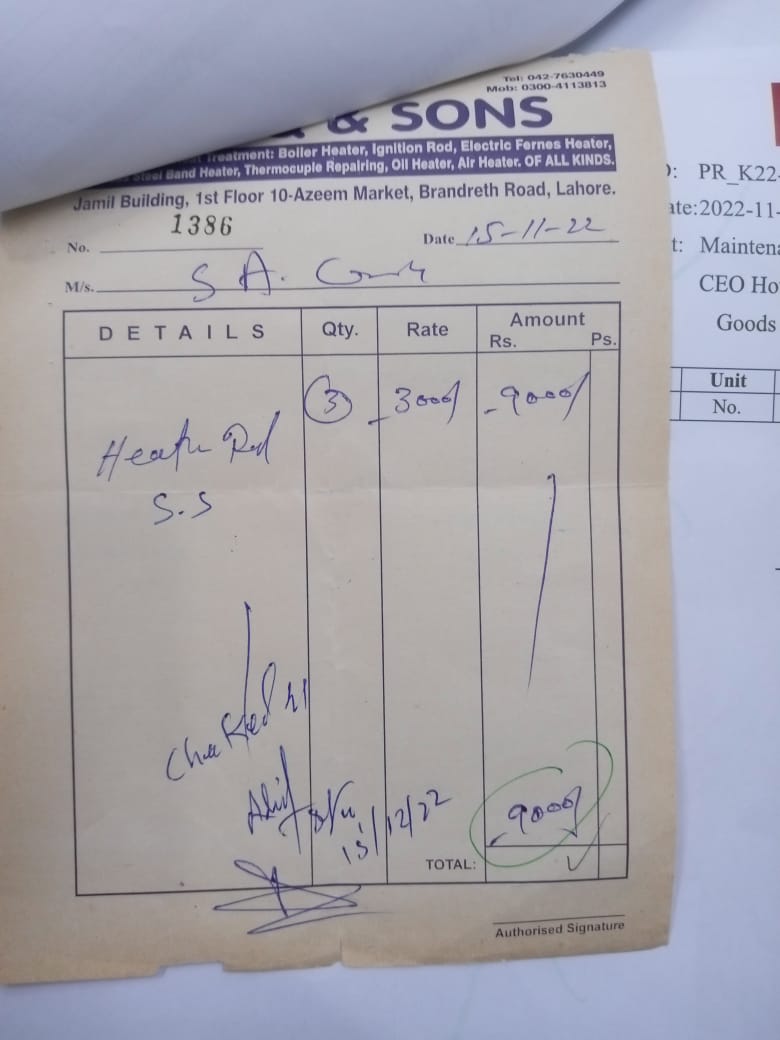 Tel: 042-7630449
Mob: 0300-4113813
& SONS
Treatment: Boiler Heater, Ignition Rod, Electric Fernes Heater,
Steel Band Heater, Thermocuple Repairing, Oil Heater, Air Heater. OF ALL KINDS.
Jamil Building, 1st Floor 10-Azeem Market, Brandreth Road, Lahore.
No. 1386
Date 15-11-22
M/s. S A.
DETAILS Qty. Rate Amount
Rs. Ps.
Heater Rod 3 3000/ 9000/
S.S
Checked
15/12/22
9000/
TOTAL:
Authorised Signature
PR_K22-
ate:2022-11-
t: Maintena
CEO Ho
Goods
Unit
No.